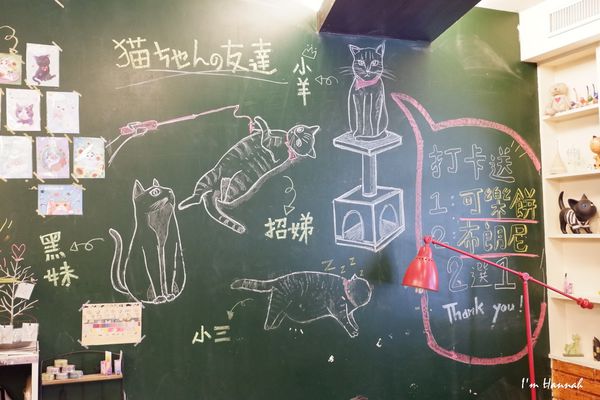 猫ちゃんの友達
小羊
招娣
黑妹
小三
打卡送
1:可樂餅
2:布朗尼
2選1
Thank you!
I'm Hannah